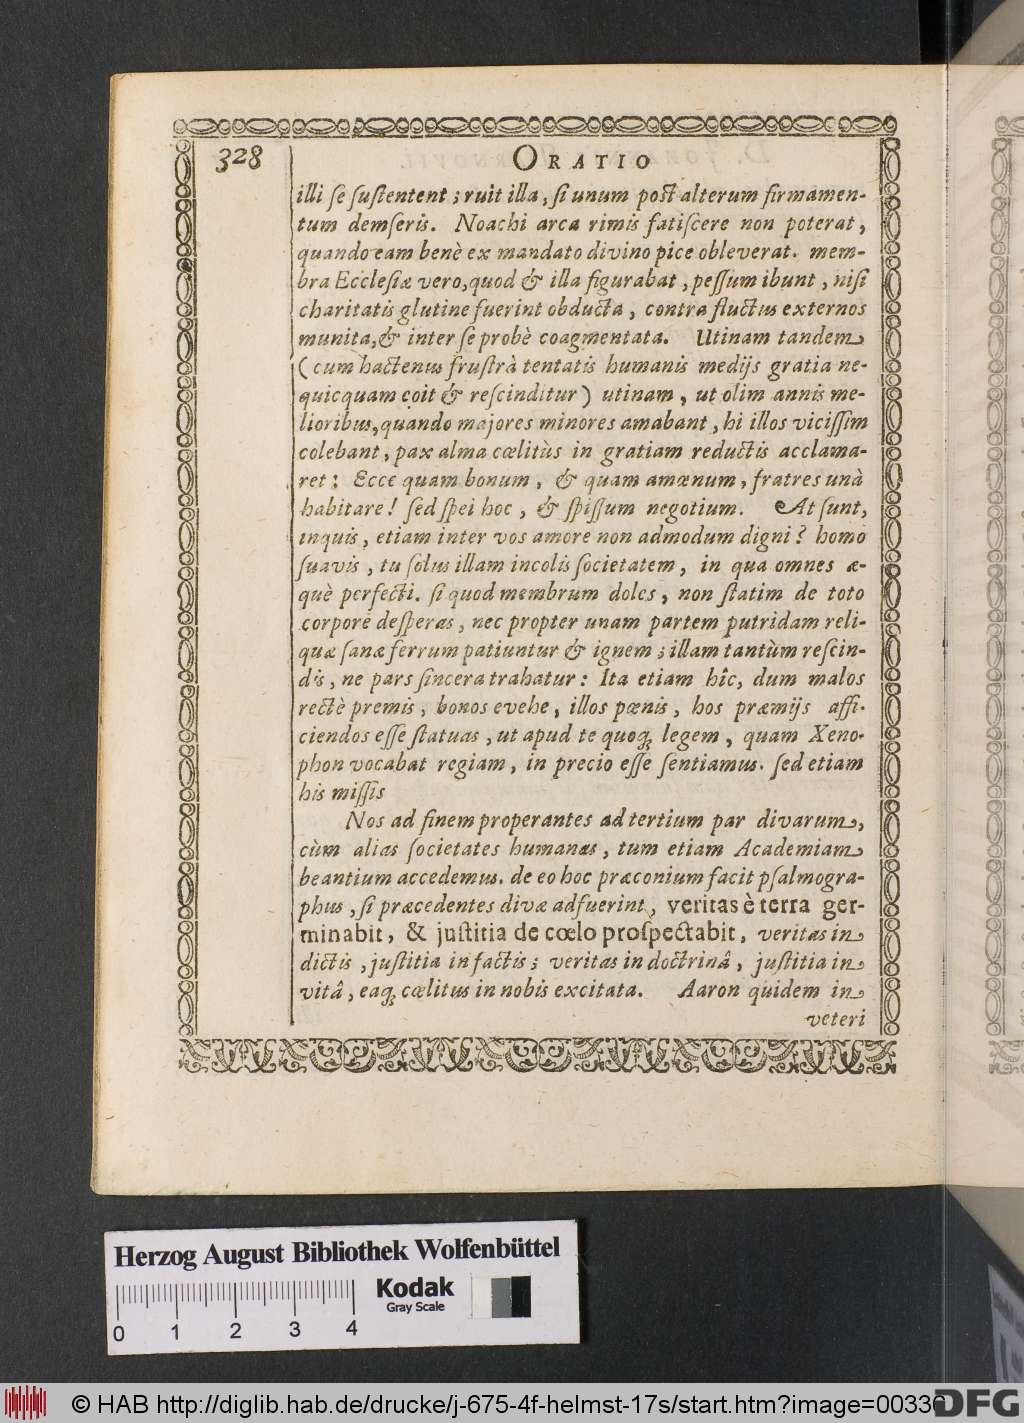 328
ORATIO
illi se sustentent; ruit illa, si unum post alterum firmamen-
tum demseris. Noachi arca rimis fatiscere non poterat,
quando eam benè ex mandato divino pice obleverat. mem-
bra Ecclesiæ vero, quod & illa figurabat, pessum ibunt, nisi
charitatis glutine fuerint obducta, contra fluctus externos
munita, & inter se probè coagmentata. Utinam tandem
(cum hactenus frustrà tentatis humanis medijs gratia ne-
quicquam coit & rescinditur) utinam, ut olim annis me-
lioribus, quando majores minores amabant, hi illos vicissim
colebant, pax alma cœlitùs in gratiam reductis acclama-
ret: Ecce quam bonum, & quam amœnum, fratres unà
habitare! sed spei hoc, & spissum negotium. At sunt,
inquis, etiam inter vos amore non admodum digni? homo
suavis, tu solus illam incolis societatem, in qua omnes æ-
què perfecti. si quod membrum doles, non statim de toto
corpore desperas, nec propter unam partem putridam reli-
quæ sanæ ferrum patiuntur & ignem; illam tantùm rescin-
dis, ne pars sincera trahatur: Ita etiam hîc, dum malos
rectè premis, bonos evehe, illos pœnis, hos præmijs affi-
ciendos esse statuas, ut apud te quoq; legem, quam Xeno-
phon vocabat regiam, in precio esse sentiamus. sed etiam
his missis
Nos ad finem properantes ad tertium par divarum,
cùm alias societates humanas, tum etiam Academiam
beantium accedemus. de eo hoc præconium facit psalmogra-
phus, si præcedentes divæ adfuerint, veritas è terra ger-
minabit, & justitia de cœlo prospectabit, veritas in
dictis, justitia in factis; veritas in doctrinâ, justitia in
vitâ, eaq; cœlitus in nobis excitata. Aaron quidem in
veteri
Herzog August Bibliothek Wolfenbüttel
Kodak
Gray Scale
0 1 2 3 4
© HAB http://diglib.hab.de/drucke/j-675-4f-helmst-17s/start.htm?image=00336
DFG